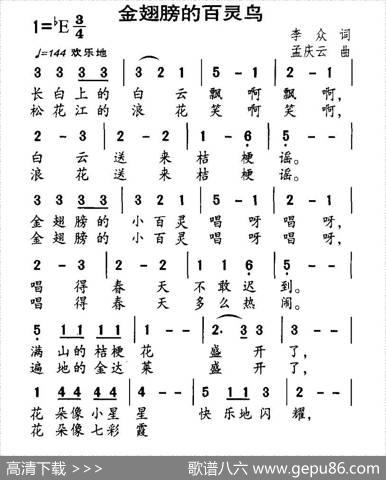 金翅膀的百灵鸟
1=♭E 3/4
李 众 词
♩=144 欢乐地
孟庆云 曲
3 3 3 3 | 3 2 1 | 5 - 1 | 2 - 1 |
长 白 上 的 白 云 飘 啊 飘 啊，
松 花 江 的 浪 花 笑 啊 笑 啊，
2 - 3 | 2 - 2 | 1 - 6 | 5 - - |
白 云 送 来 桔 梗 谣。
浪 花 送 来 桔 梗 谣。
3 3 3 3 | 3 2 1 | 5 - 1 | 2 - 1 |
金 翅 膀 的 小 百 灵 唱 呀 唱 呀，
金 翅 膀 的 小 百 灵 唱 呀 唱 呀，
2 - 3 | 2 - 2 | 1 2 6 | 5 - - |
唱 得 春 天 不 敢 迟 到。
唱 得 春 天 多 么 热 闹。
5 1 1 1 1 | 1 - - | 2· 3 3 | 3 - - |
满 山 的 桔 梗 花 盛 开 了，
遍 地 的 金 达 莱 盛 开 了，
1 4 4 4 4 | 4 - - | 5 1 1 3 | 2 - - |
花 朵 像 小 星 星 快 乐 地 闪 耀，
花 朵 像 七 彩 霞
高清下载 >>>
歌谱八六 www.gepu86.com